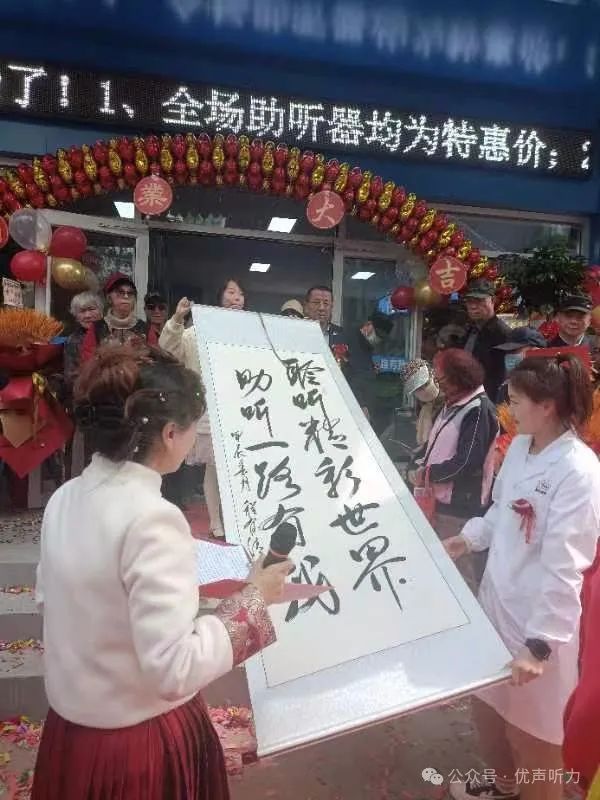 了！1、全场助听器均为特惠价；2
業
大
吉
聆听精彩世界
助听一路有我
甲辰
公众号 · 优声听力